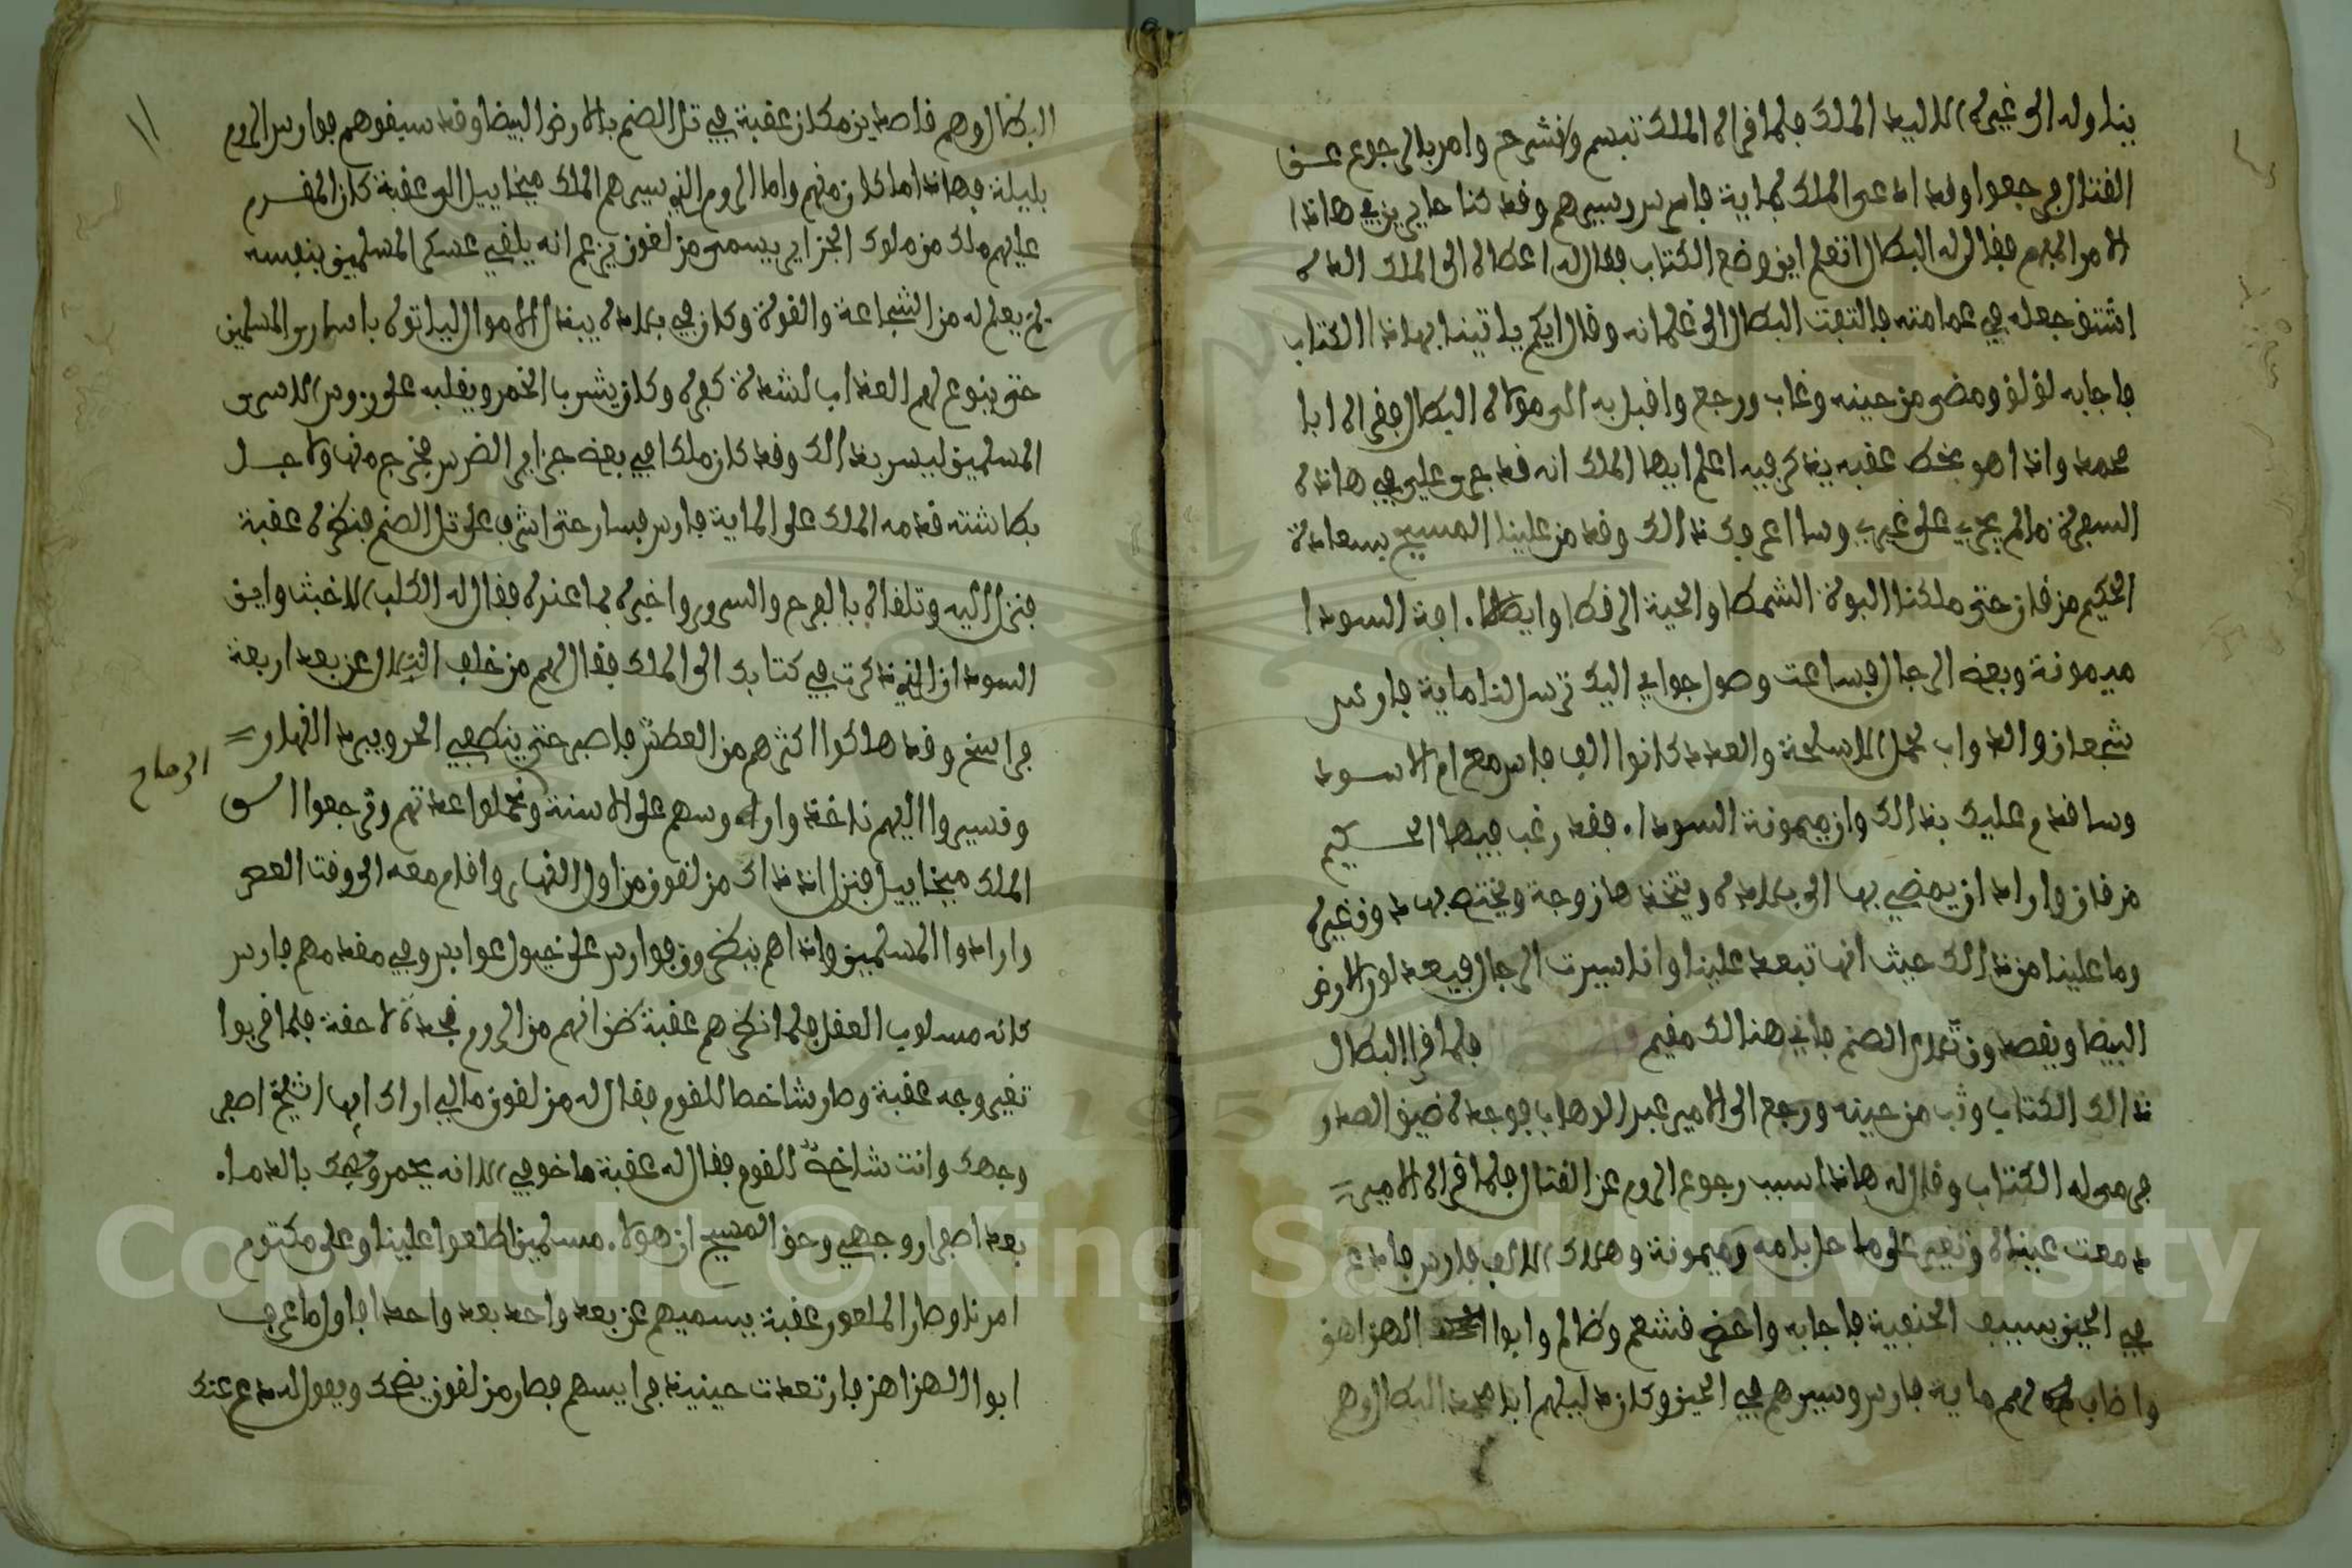 يناوله الى غيره الا ليد الملك فلما قراه الملك تبسم وانشرح وامر بالرجوع عن
القتال فرجعوا وقد ادعى الملك بماية فارس وسيرهم وقد كنا حايرين في هاذا
الامر المهم فقال له البطال اتعلم اين وضع الكتاب فقال له اعطاه الى الملك الذي
افتتق جعله في عمامته فالتفت البطال الى غلمانه وقال ايكم ياتينا بهاذا الكتاب
فاجابه لؤلؤ ومضى من حينه وغاب ورجع واقبل به الى مولاه البطال فقراه ابا
محمد واذا هو بخط عقبه يذكر فيه اعلم ايها الملك انه قد جرى علي في هاذه
السفرة ما لم يجري على غيري وسااعرفك بذالك وقد من علينا المسيح بسعادة
الحكيم مزقان حتى ملكنا البوة الشمطا والحية الرقطا وايضا افة السودا
ميمونة وبعض الرجال فساعت وصول جوابي اليك ترسل لنا ماية فارس
شجعان والدواب لحمل الاسلحة والعدد كانوا الف فارس مع ام الاسود
وساقدم عليك بذالك وان ميمونة السودا فقد رغب فيها الحكيم
مزقان واراد ان يمضي بها الى بلاده ويتخذها زوجة ويختص بها دون غيره
وما علينا من ذالك حيث انها تبعد علينا وانا سيرت الرجال فيعدلوا الارض
البيضا ويقصدون تلال الصنم فاني هنالك مقيم فلما قرا البطال
ذالك الكتاب وثب من حينه ورجع الى الامير عبد الوهاب فوجده ضيق الصدر
فرمى له الكتاب وقال له هاذا سبب رجوع الروم عن القتال فلما قراه الامير
دمعت عيناه وتغير على ما حل بامه وميمونة وهلاك الالف فارس فادعى
في الحين بسببب الحنفية فاجابه واحضر قشعم وظالم وابوا الهزاهز
واضاف لهم ماية فارس وسيرهم في الحين وكان دليلهم ابا محمد البطال وهم
١١
البطال وهم قاصدين مكان عقبة في تل الصنم بالارض البيضا وقد سبقوهم فوارس الروم
بليلة فهاذا ما كان منهم واما الروم الذي سيرهم الملك ميخاييل الى عقبة كان المقدم
عليهم ملك من ملوك الجزاير يسمى مزلقون يزعم انه يلقي عسكر المسلمين بنفسه
لم يعلم له من الشجاعة والقوة وكان في بلاده يبذل الاموال لياتوه باسارى المسلمين
حتى ينوع لهم العذاب لشدة كفره وكان يشرب الخمر ويقلبه على رءوس الاسرى
المسلمين ليسر بذالك وقد كان ملكا في بعض جزاير الضرس فخرج منها ولاجل
بطاشته قدمه الملك على الماية فارس فسار حتى اشرف على تل الصنم فنظره عقبة
فنزل اليه وتلقاه بالفرح والسرور واخبره بما عنده فقال له الكلب الاخبث واين
السودان الذي ذكرت في كتابك الى الملك فقال لهم من خلف التلال عن بعد اربعة
فراسخ وقد هلكوا اكثرهم من العطش فاصبر حتى ينطفي الحر ويبرد النهار
وتسيروا اليهم ناخذوا رءوسهم على الاسنة ونحملوا عدتهم وترجعوا الى
الرماح
الملك ميخاييل فنزل اذ ذاك مزلقون من اول النهار واقام معه الى وقت العصر
وارادوا المسلمين واذا هم ينظرون فوارس على خيول عوابس وفي مقدمهم فارس
كانه مسلوب العقل فلما نظرهم عقبة ظن انهم من الروم نجدة لاحقة فلما قربوا
تغير وجه عقبة وصار شاخصا للقوم فقال له مزلقون مالي اراك ايها الشيخ اصفر
وجهك وانت شاخص للقوم فقال له عقبة ما خوفي الا انه يحمر وجهك بالدما
بعد اصفرار وجهي وحق المسيح ان هولا مسلمين اطلعوا علينا وعلى مكتوم
امرنا وصار الملعون عقبة يسميهم عن بعد واحد بعد واحد فاول ما عرف
ابوا الهزاهز فارتعدت حينيذ فرايسهم فصار مزلقون يضحك ويقول له دع عنك